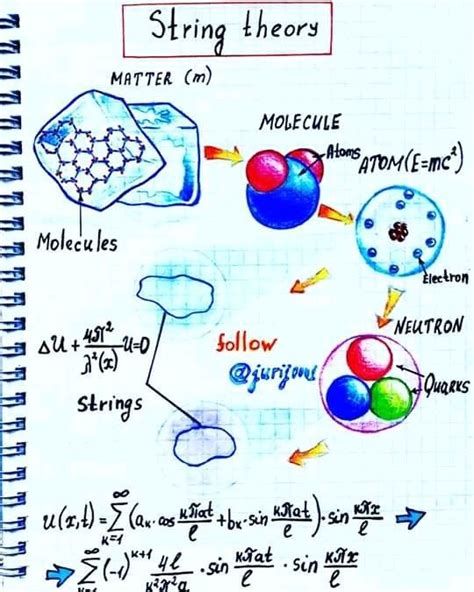 String theory
MATTER (m)
MOLECULE
Atoms
ATOM (E=mc²)
Molecules
Electron
NEUTRON
Quarks
ΔU + 4π²/λ²(x) U=0
follow
@jurijons
Strings
u(x,t) = ∑ₖ₌₁^∞ (aₖ·cos кπat/ℓ + bₖ·sin кπat/ℓ)·sin кπx/ℓ
∑ₖ₌₁^∞ (-1)^(к+1) 4ℓ/к²π²a · sin кπat/ℓ · sin кπx/ℓ